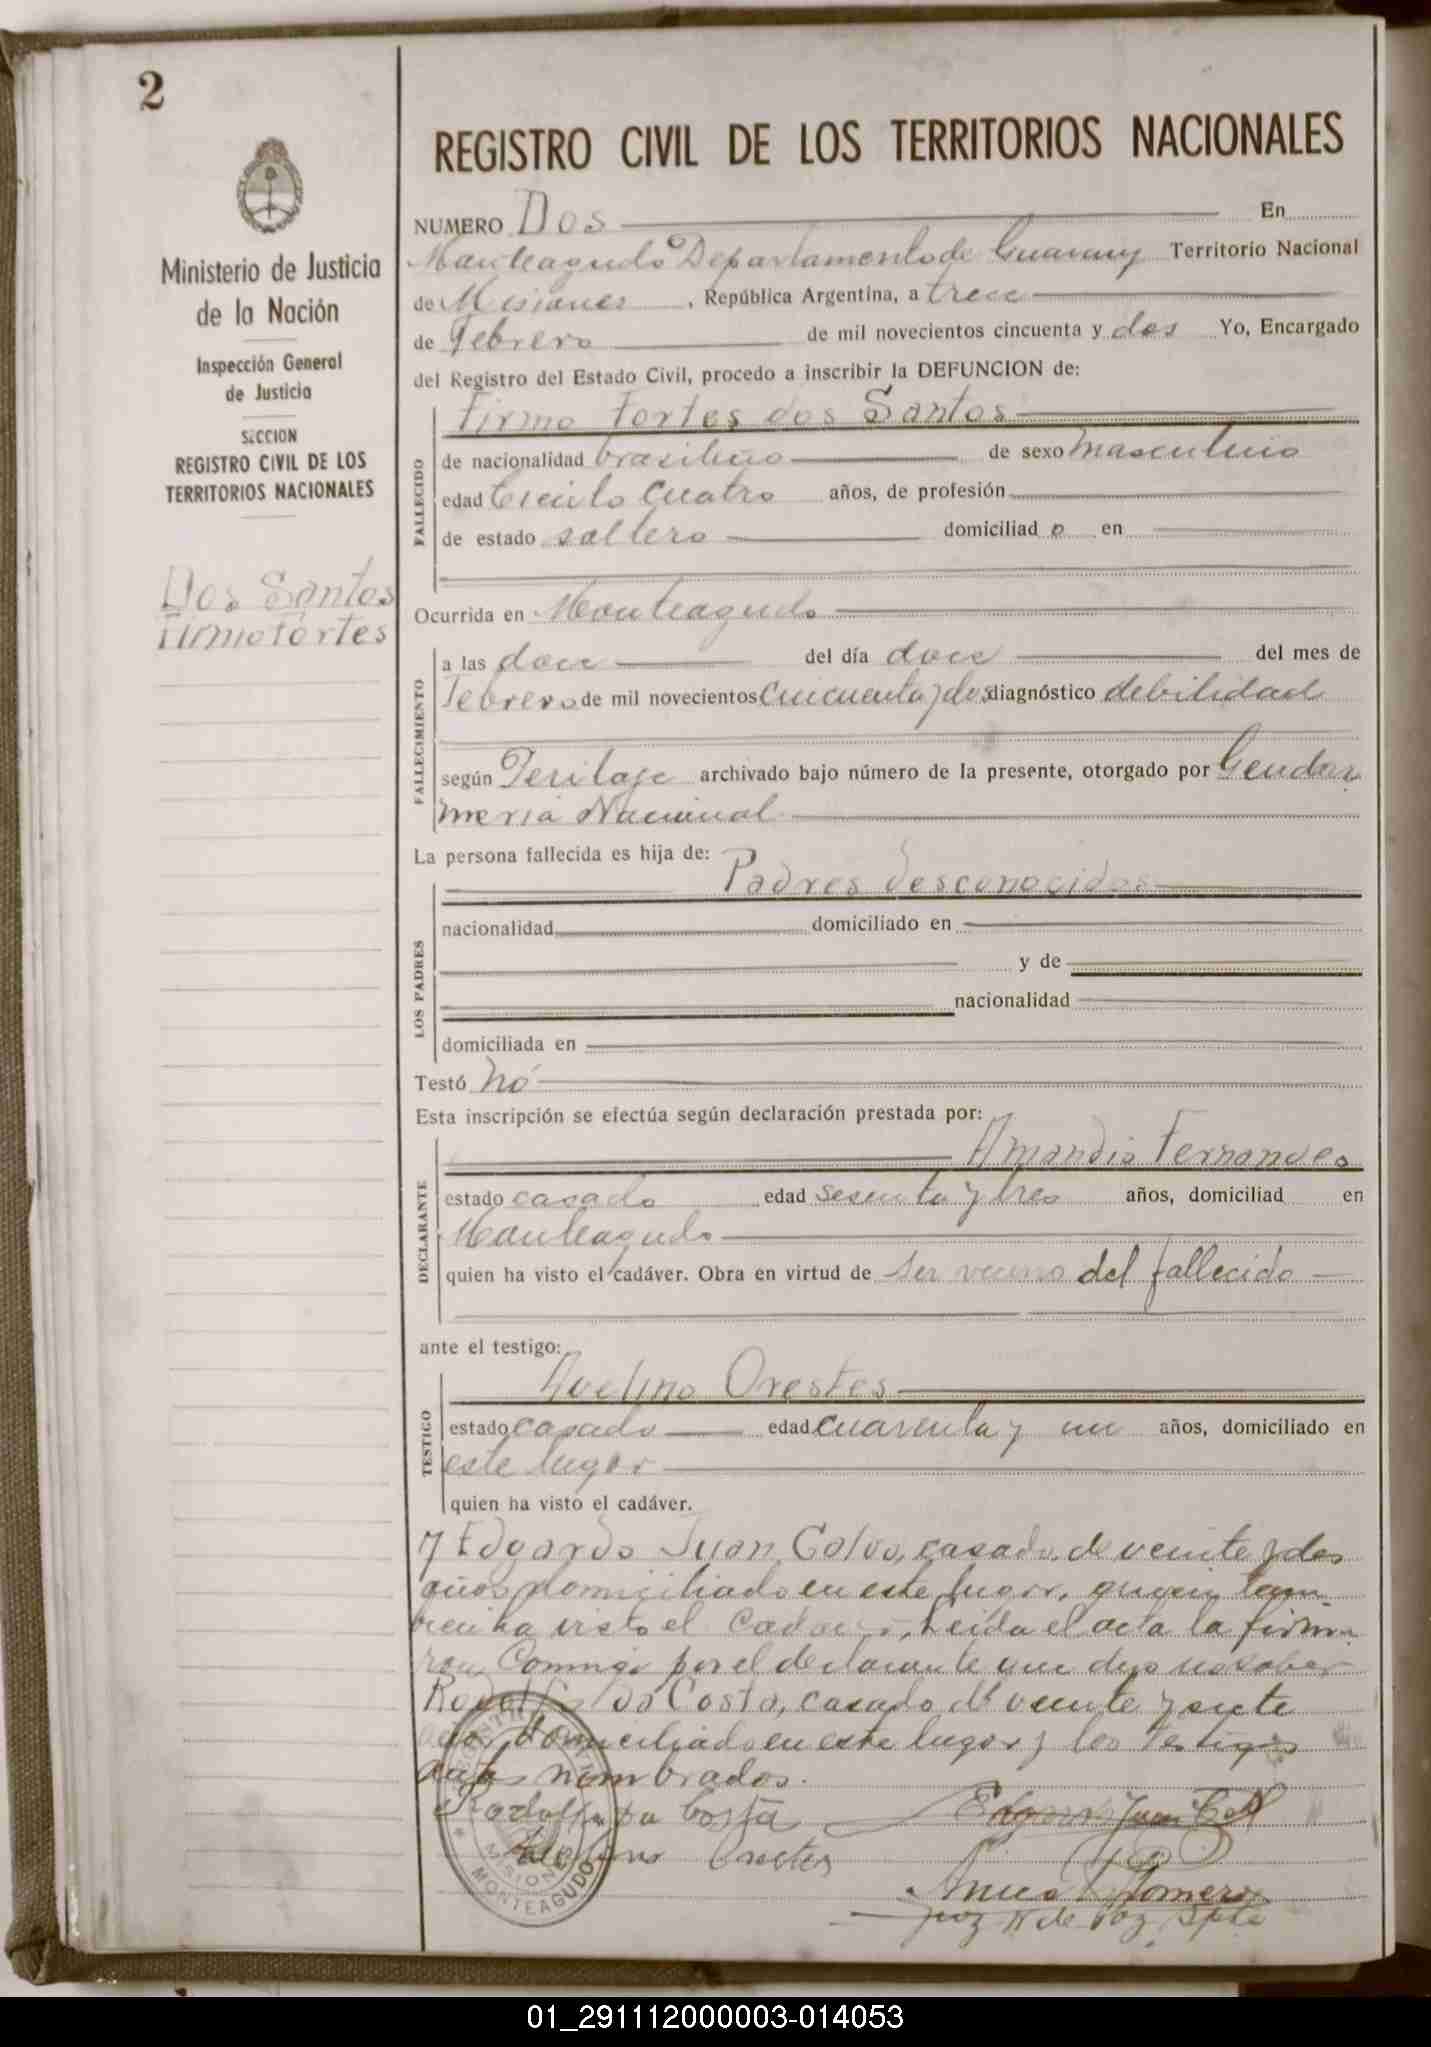 2
Ministerio de Justicia
de la Nación
Inspección General
de Justicia
SECCION
REGISTRO CIVIL DE LOS
TERRITORIOS NACIONALES
Dos Santos
Firmo Fortes
REGISTRO CIVIL DE LOS TERRITORIOS NACIONALES
NUMERO Dos En
Monteagudo Departamento de Guarany Territorio Nacional
de Misiones, República Argentina, a trece
de Febrero de mil novecientos cincuenta y dos Yo, Encargado
del Registro del Estado Civil, procedo a inscribir la DEFUNCION de:
Firmo Fortes dos Santos
FALLECIDO
de nacionalidad brasileño de sexo masculino
edad ciento cuatro años, de profesión
de estado soltero domiciliado en
Ocurrida en Monteagudo
FALLECIMIENTO
a las doce del día doce del mes de
Febrero de mil novecientos cincuenta y dos diagnóstico debilidad
según Peritaje archivado bajo número de la presente, otorgado por Gendar
meria Nacional
La persona fallecida es hija de:
Padres desconocidos
LOS PADRES
nacionalidad domiciliado en
y de
nacionalidad
domiciliada en
Testó no
Esta inscripción se efectúa según declaración prestada por:
Amandio Fernandes
DECLARANTE
estado casado edad sesenta y tres años, domiciliad en
Monteagudo
quien ha visto el cadáver. Obra en virtud de ser vecino del fallecido
ante el testigo:
Avelino Orestes
TESTIGO
estado casado edad cuarenta y un años, domiciliado en
este lugar
quien ha visto el cadáver.
y Edgardo Juan casado, de veinte y dos
años domiciliado en este lugar, quien tam
bien ha visto el cadaver, Leida el acta la firma
ron Conmigo por el declarante que dijo no saber
Rodolfo Da Costa, casado de veinte y siete
años domiciliado en este lugar y los testigos
antes nombrados.
Rodolfo da Costa Edgardo Juan
Avelino Orestes
Romero
Juez de Paz Splte
MISIONES
MONTEAGUDO
01_291112000003-014053